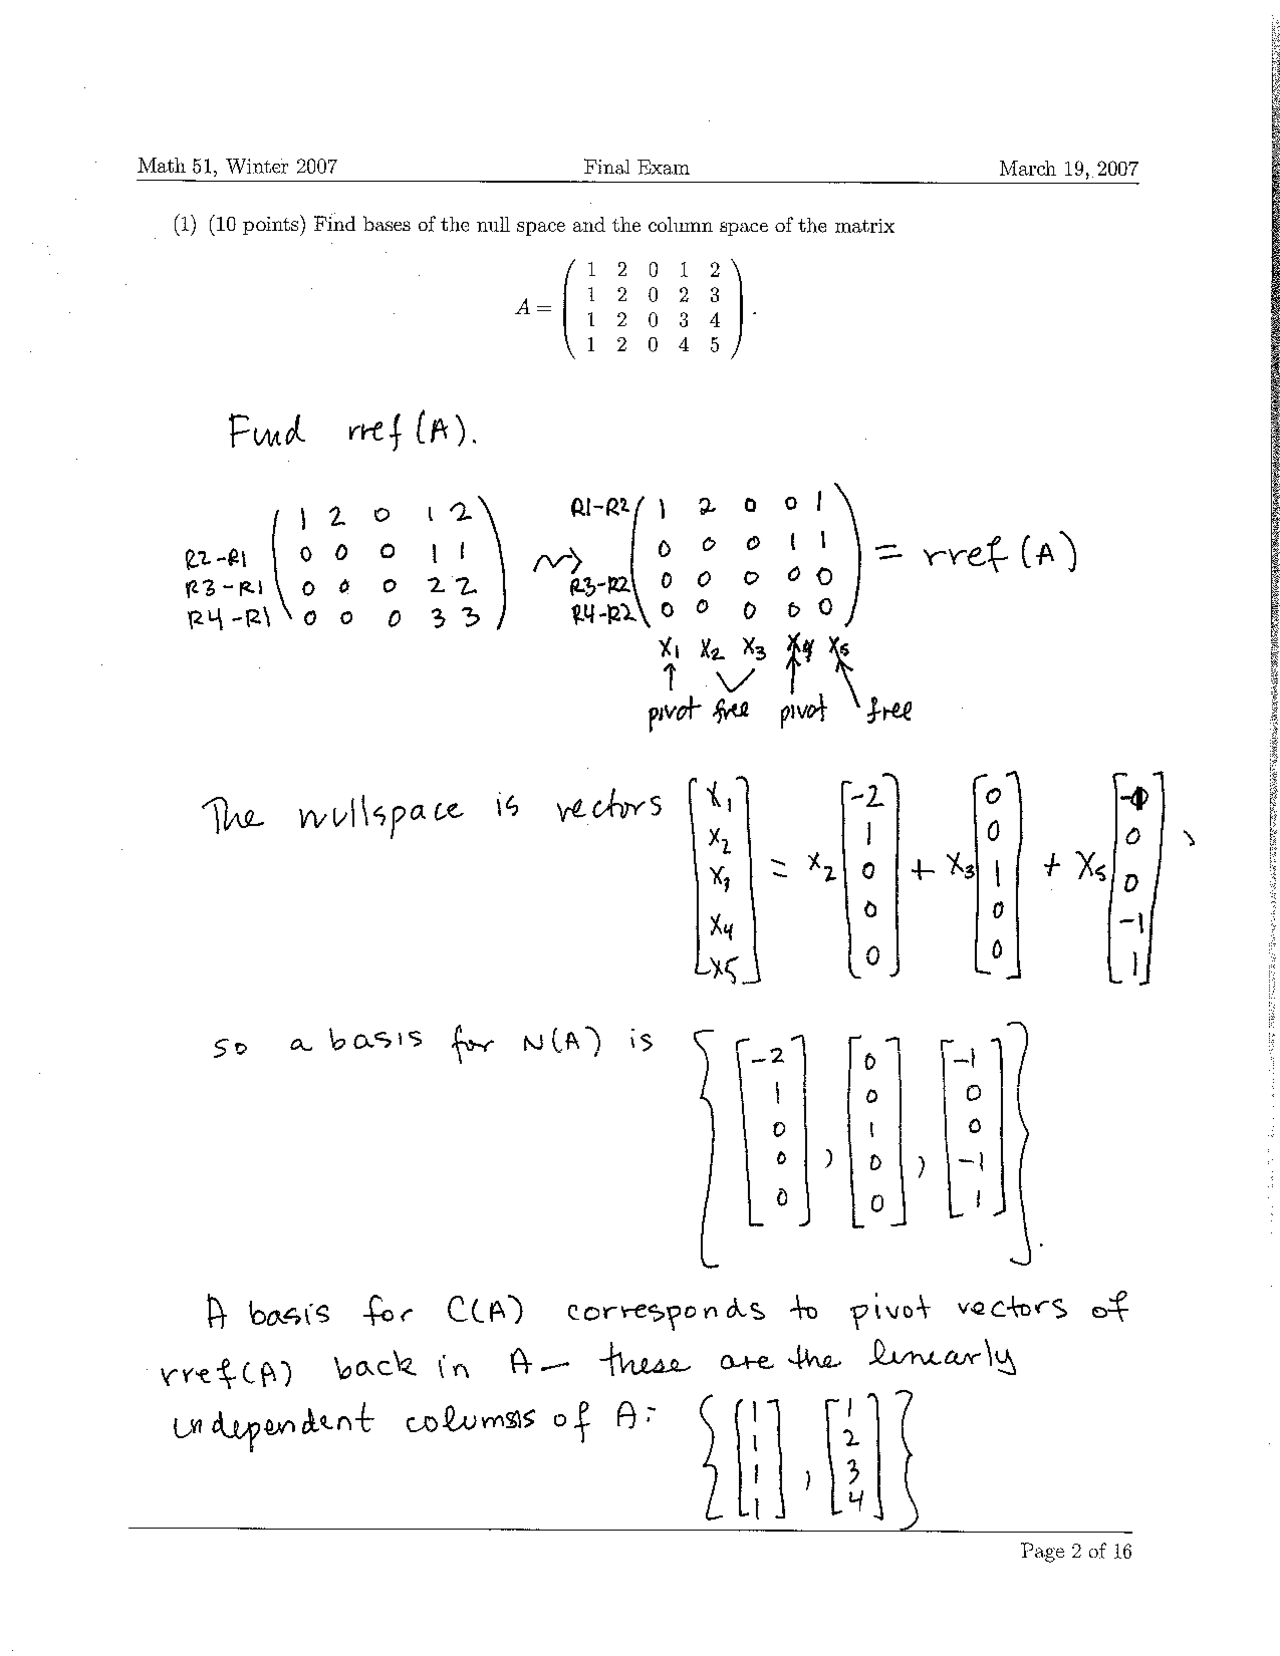 Math 51, Winter 2007 Final Exam March 19, 2007
(1) (10 points) Find bases of the null space and the column space of the matrix
1 2 0 1 2
1 2 0 2 3
A =
1 2 0 3 4
1 2 0 4 5 .
Find rref(A).
1 2 0 1 2 R1-R2 1 2 0 0 1
R2-R1 0 0 0 1 1 0 0 0 1 1 = rref(A)
R3-R1 0 0 0 2 2 R3-R2 0 0 0 0 0
R4-R1 0 0 0 3 3 R4-R2 0 0 0 0 0
x1 x2 x3 x4 x5
pivot free pivot free
The nullspace is vectors [x1 x2 x3 x4 x5] = x2 [-2 1 0 0 0] + x3 [0 0 1 0 0] + x5 [-1 0 0 -1 1],
so a basis for N(A) is { [-2 1 0 0 0], [0 0 1 0 0], [-1 0 0 -1 1] }.
A basis for C(A) corresponds to pivot vectors of
rref(A) back in A — these are the linearly
independent columns of A: { [1 1 1 1], [1 2 3 4] }
Page 2 of 16